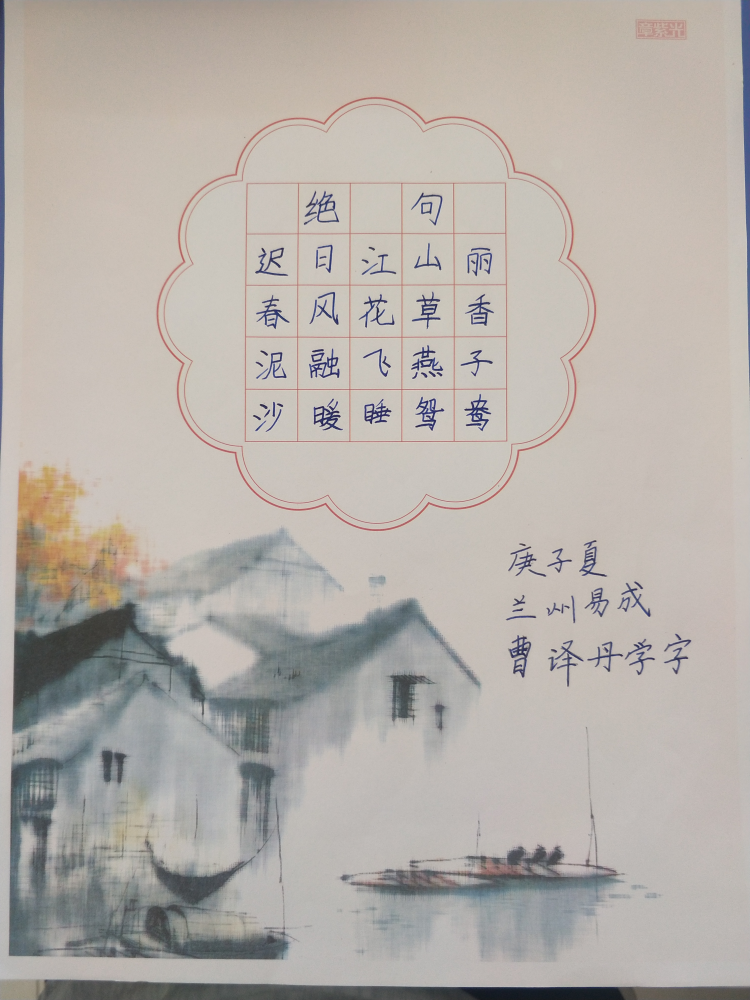 绝句
迟日江山丽
春风花草香
泥融飞燕子
沙暖睡鸳鸯
庚子夏
兰州易成
曹译丹学字